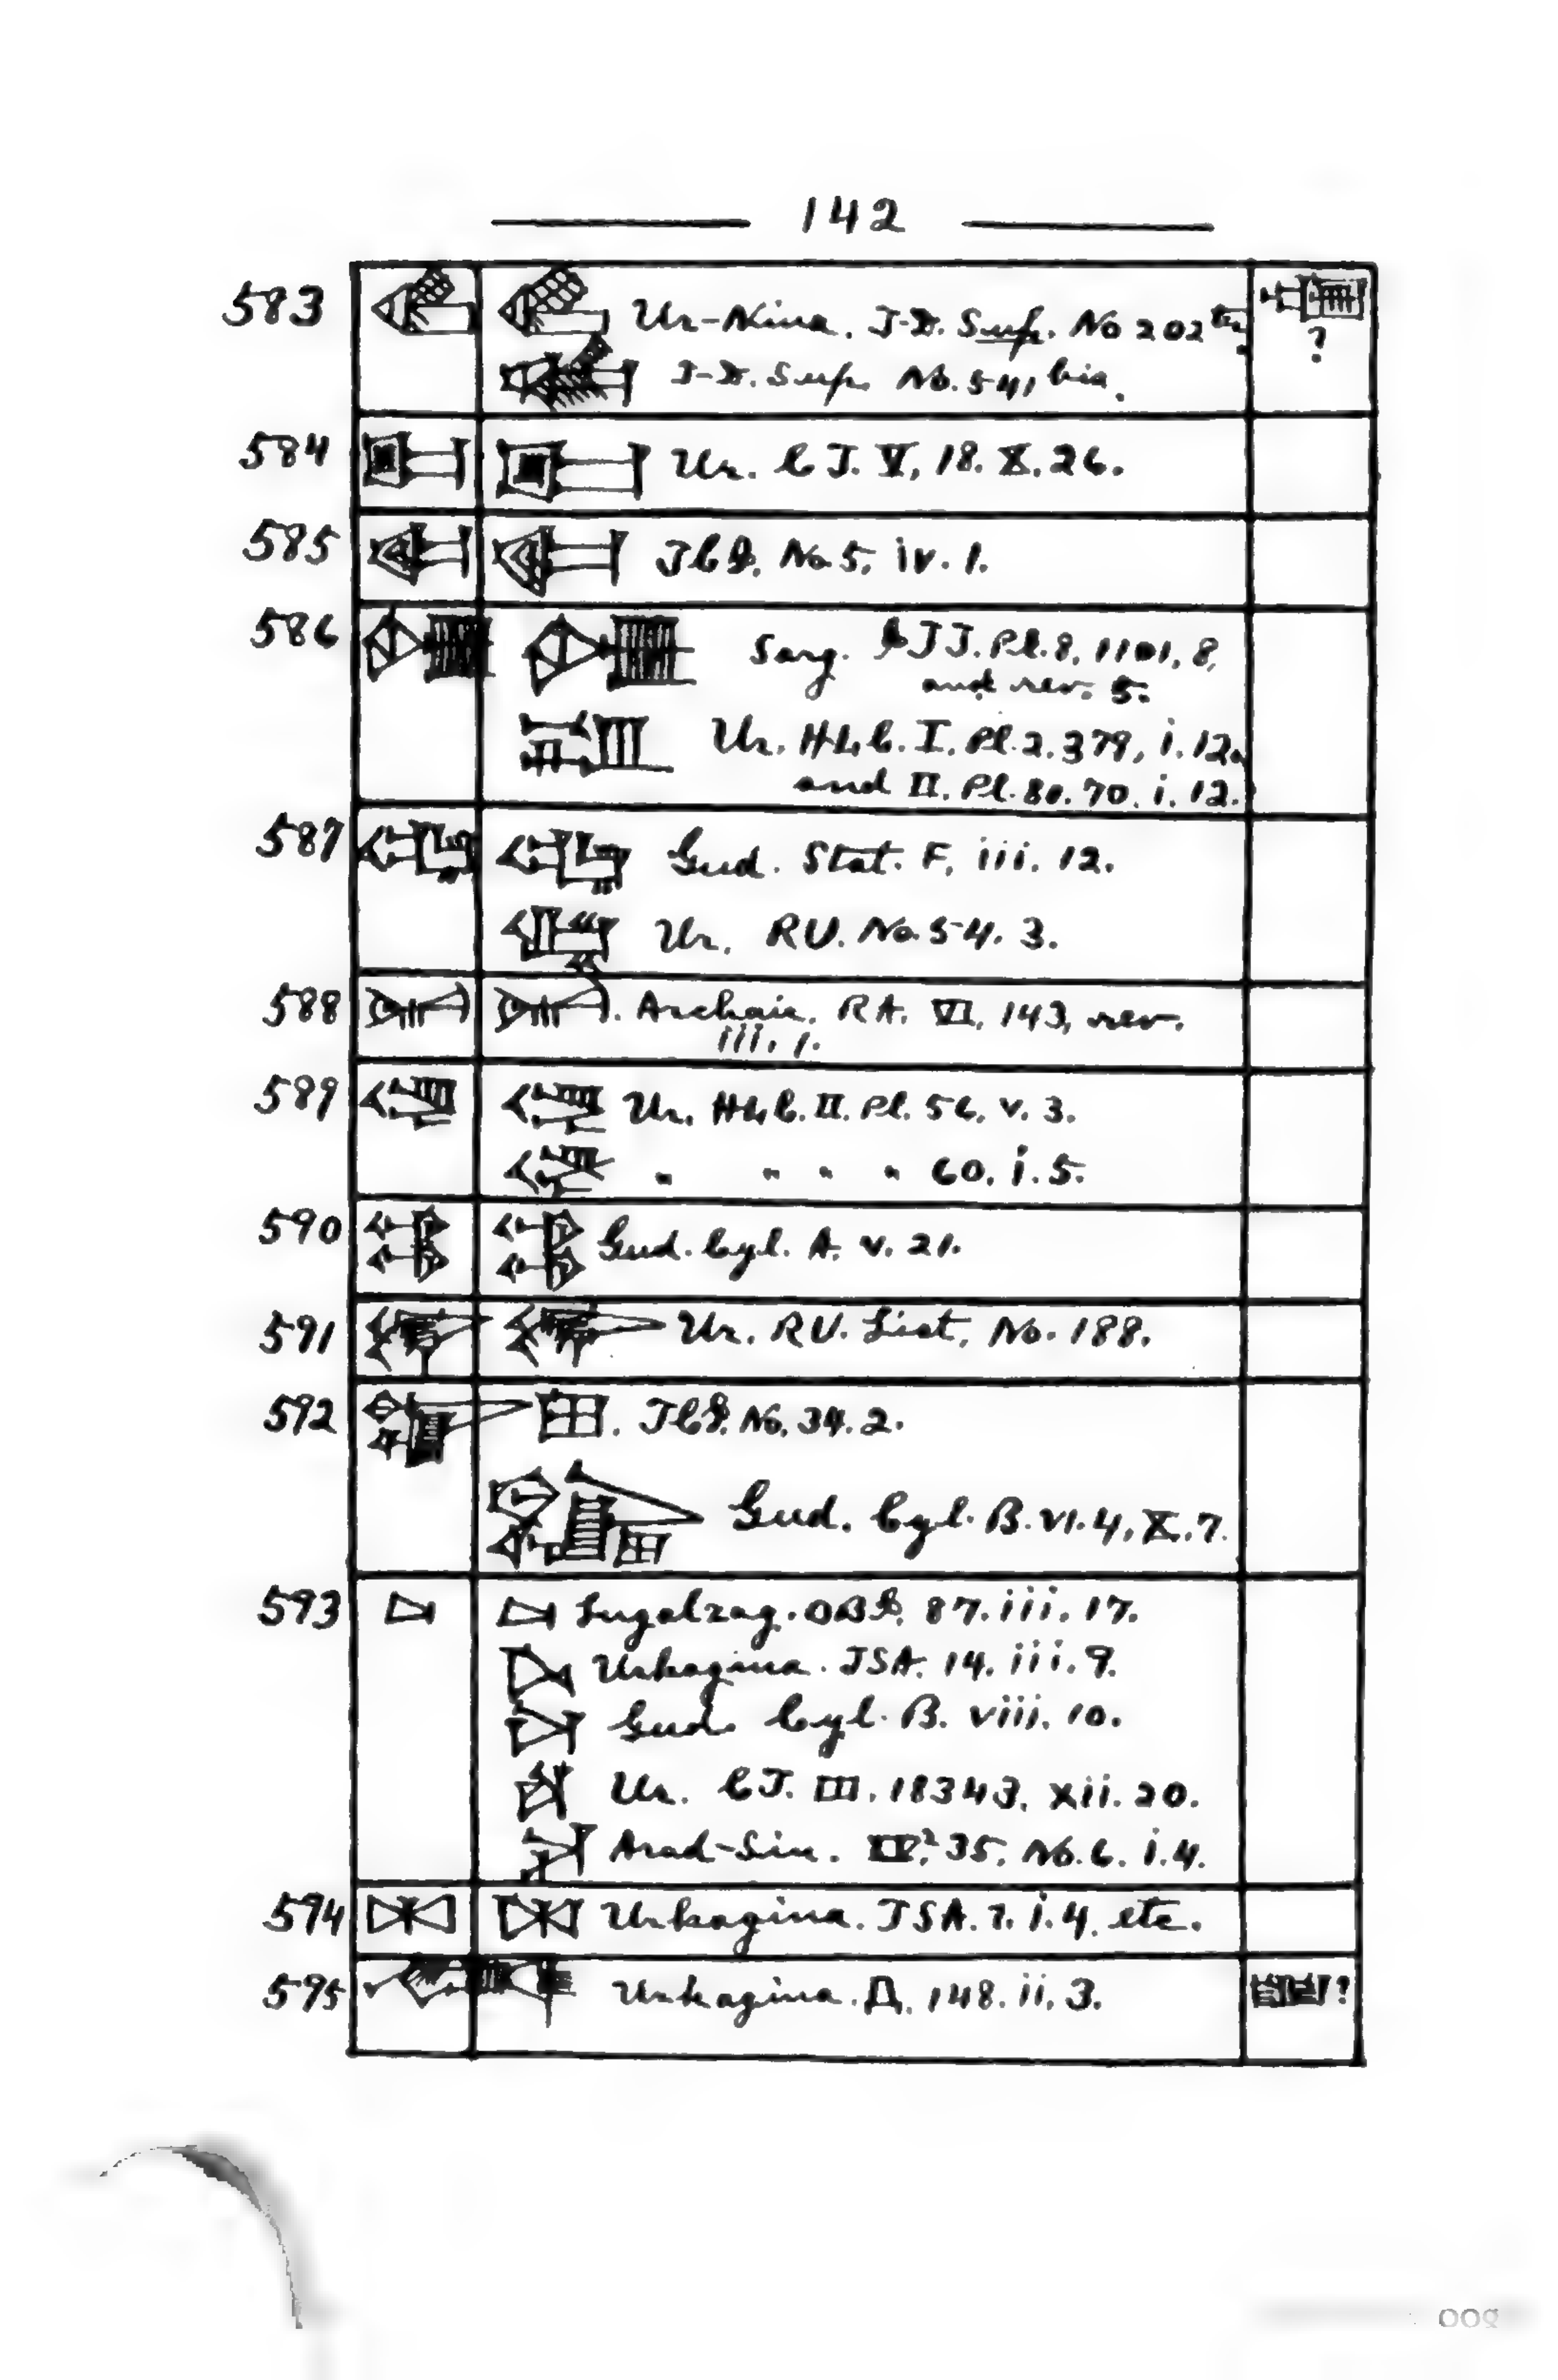 142
583 Ur-Nina. T-D. Sup. No 202 ter.
T-D. Sup. No. 541 bis.
?
584 Ur. CT. V, 18. X. 26.
585 No 5, iv. 1.
586 Sarg. Pl. 8, 1101, 8,
and rev. 5.
Ur. HLC. I. Pl. 2. 379, i. 12.
and II. Pl. 80. 70. i. 12.
587 Gud. Stat. F, iii. 12.
Ur. RU. No. 54. 3.
588 Archaic. RA. VI, 143, rev.
iii. 1.
589 Ur. HLC. II. Pl. 56, v. 3.
" " " " 60, i. 5.
590 Gud. Cyl. A. v. 21.
591 Ur. RU. List, No. 188.
592 No. 34. 2.
Gud. Cyl. B. vi. 4, X. 7.
593 Lugalzag. 87. iii. 17.
Urkagina. TSA. 14. iii. 9.
Gud. Cyl. B. viii. 10.
Ur. CT. III. 18343, xii. 20.
Arad-Sin. IV² 35, No. 6. i. 4.
594 Urkagina. TSA. 7. i. 4. etc.
595 Urkagina. Д. 148. ii. 3.
?